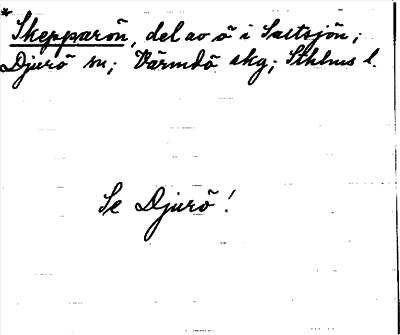 *Skepparön, del av ö i Saltsjön;
Djurö sn; Värmdö skg; Sthlms l.
Se Djurö!